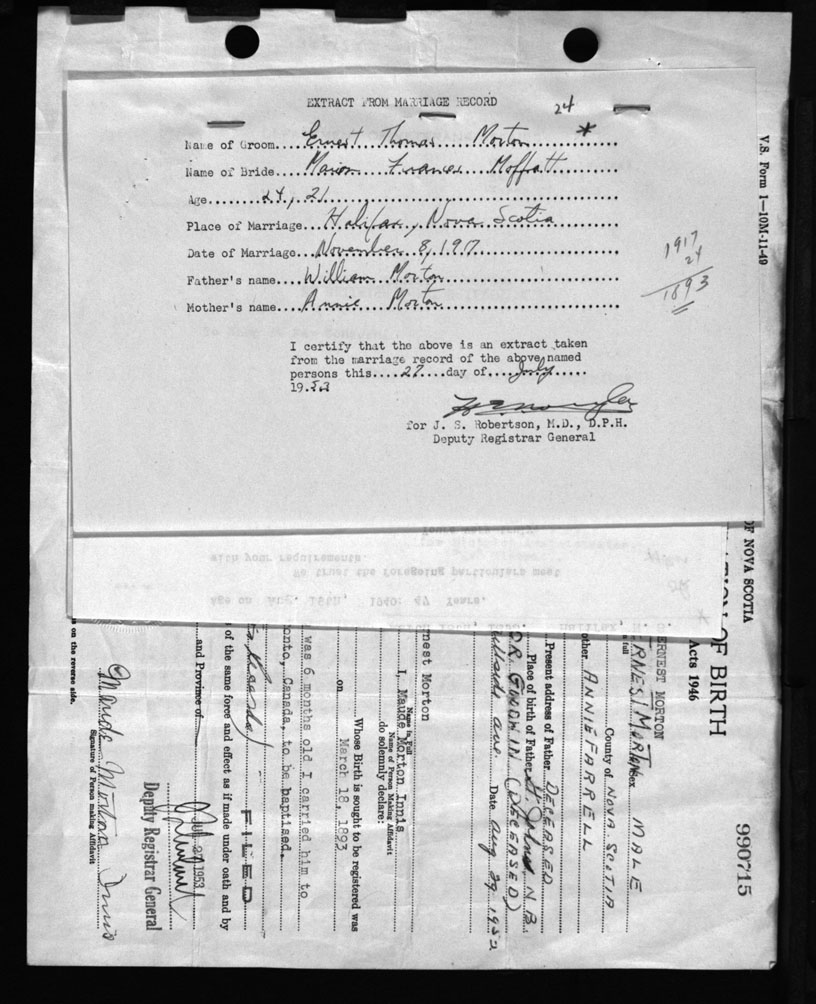 EXTRACT FROM MARRIAGE RECORD
24
Name of Groom....Ernest Thomas Morton *
Name of Bride....Marion Frances Moffatt
Age........24, 21
Place of Marriage...Halifax, Nova Scotia
Date of Marriage...November 8, 1917
Father's name....William Morton
Mother's name....Annie Morton
1917
24
1893
I certify that the above is an extract taken
from the marriage record of the above named
persons this....27....day of...July.....
19.53
for J. S. Robertson, M.D., D.P.H.
Deputy Registrar General
V.S. Form 1—10M-11-49
OF NOVA SCOTIA
OF BIRTH
990715
Acts 1946
ERNEST MORTON
in full
ERNEST MORTON Sex MALE
County of NOVA SCOTIA
other ANNIE FARRELL
Present address of Father DECEASED
Place of birth of Father St. John, N.B.
DR. GOODWIN (DECEASED)
ave. Date Aug 29 1952
rnest Morton
Name in Full
I, Maude Morton Innis
Name of Person Making Affidavit
do solemnly declare:
Whose Birth is sought to be registered was
on March 18, 1893
was 6 months old I carried him to
onto, Canada, to be baptised.
FILED
of the same force and effect as if made under oath and by
and Province of
Jul 27 1953
Deputy Registrar General
Maude Morton Innis
Signature of Person making Affidavit
s on the reverse side.
We trust the foregoing particulars meet
with your requirements.
Age on Aug. 19th, 1940: 47 Years.
Halifax, N. S.